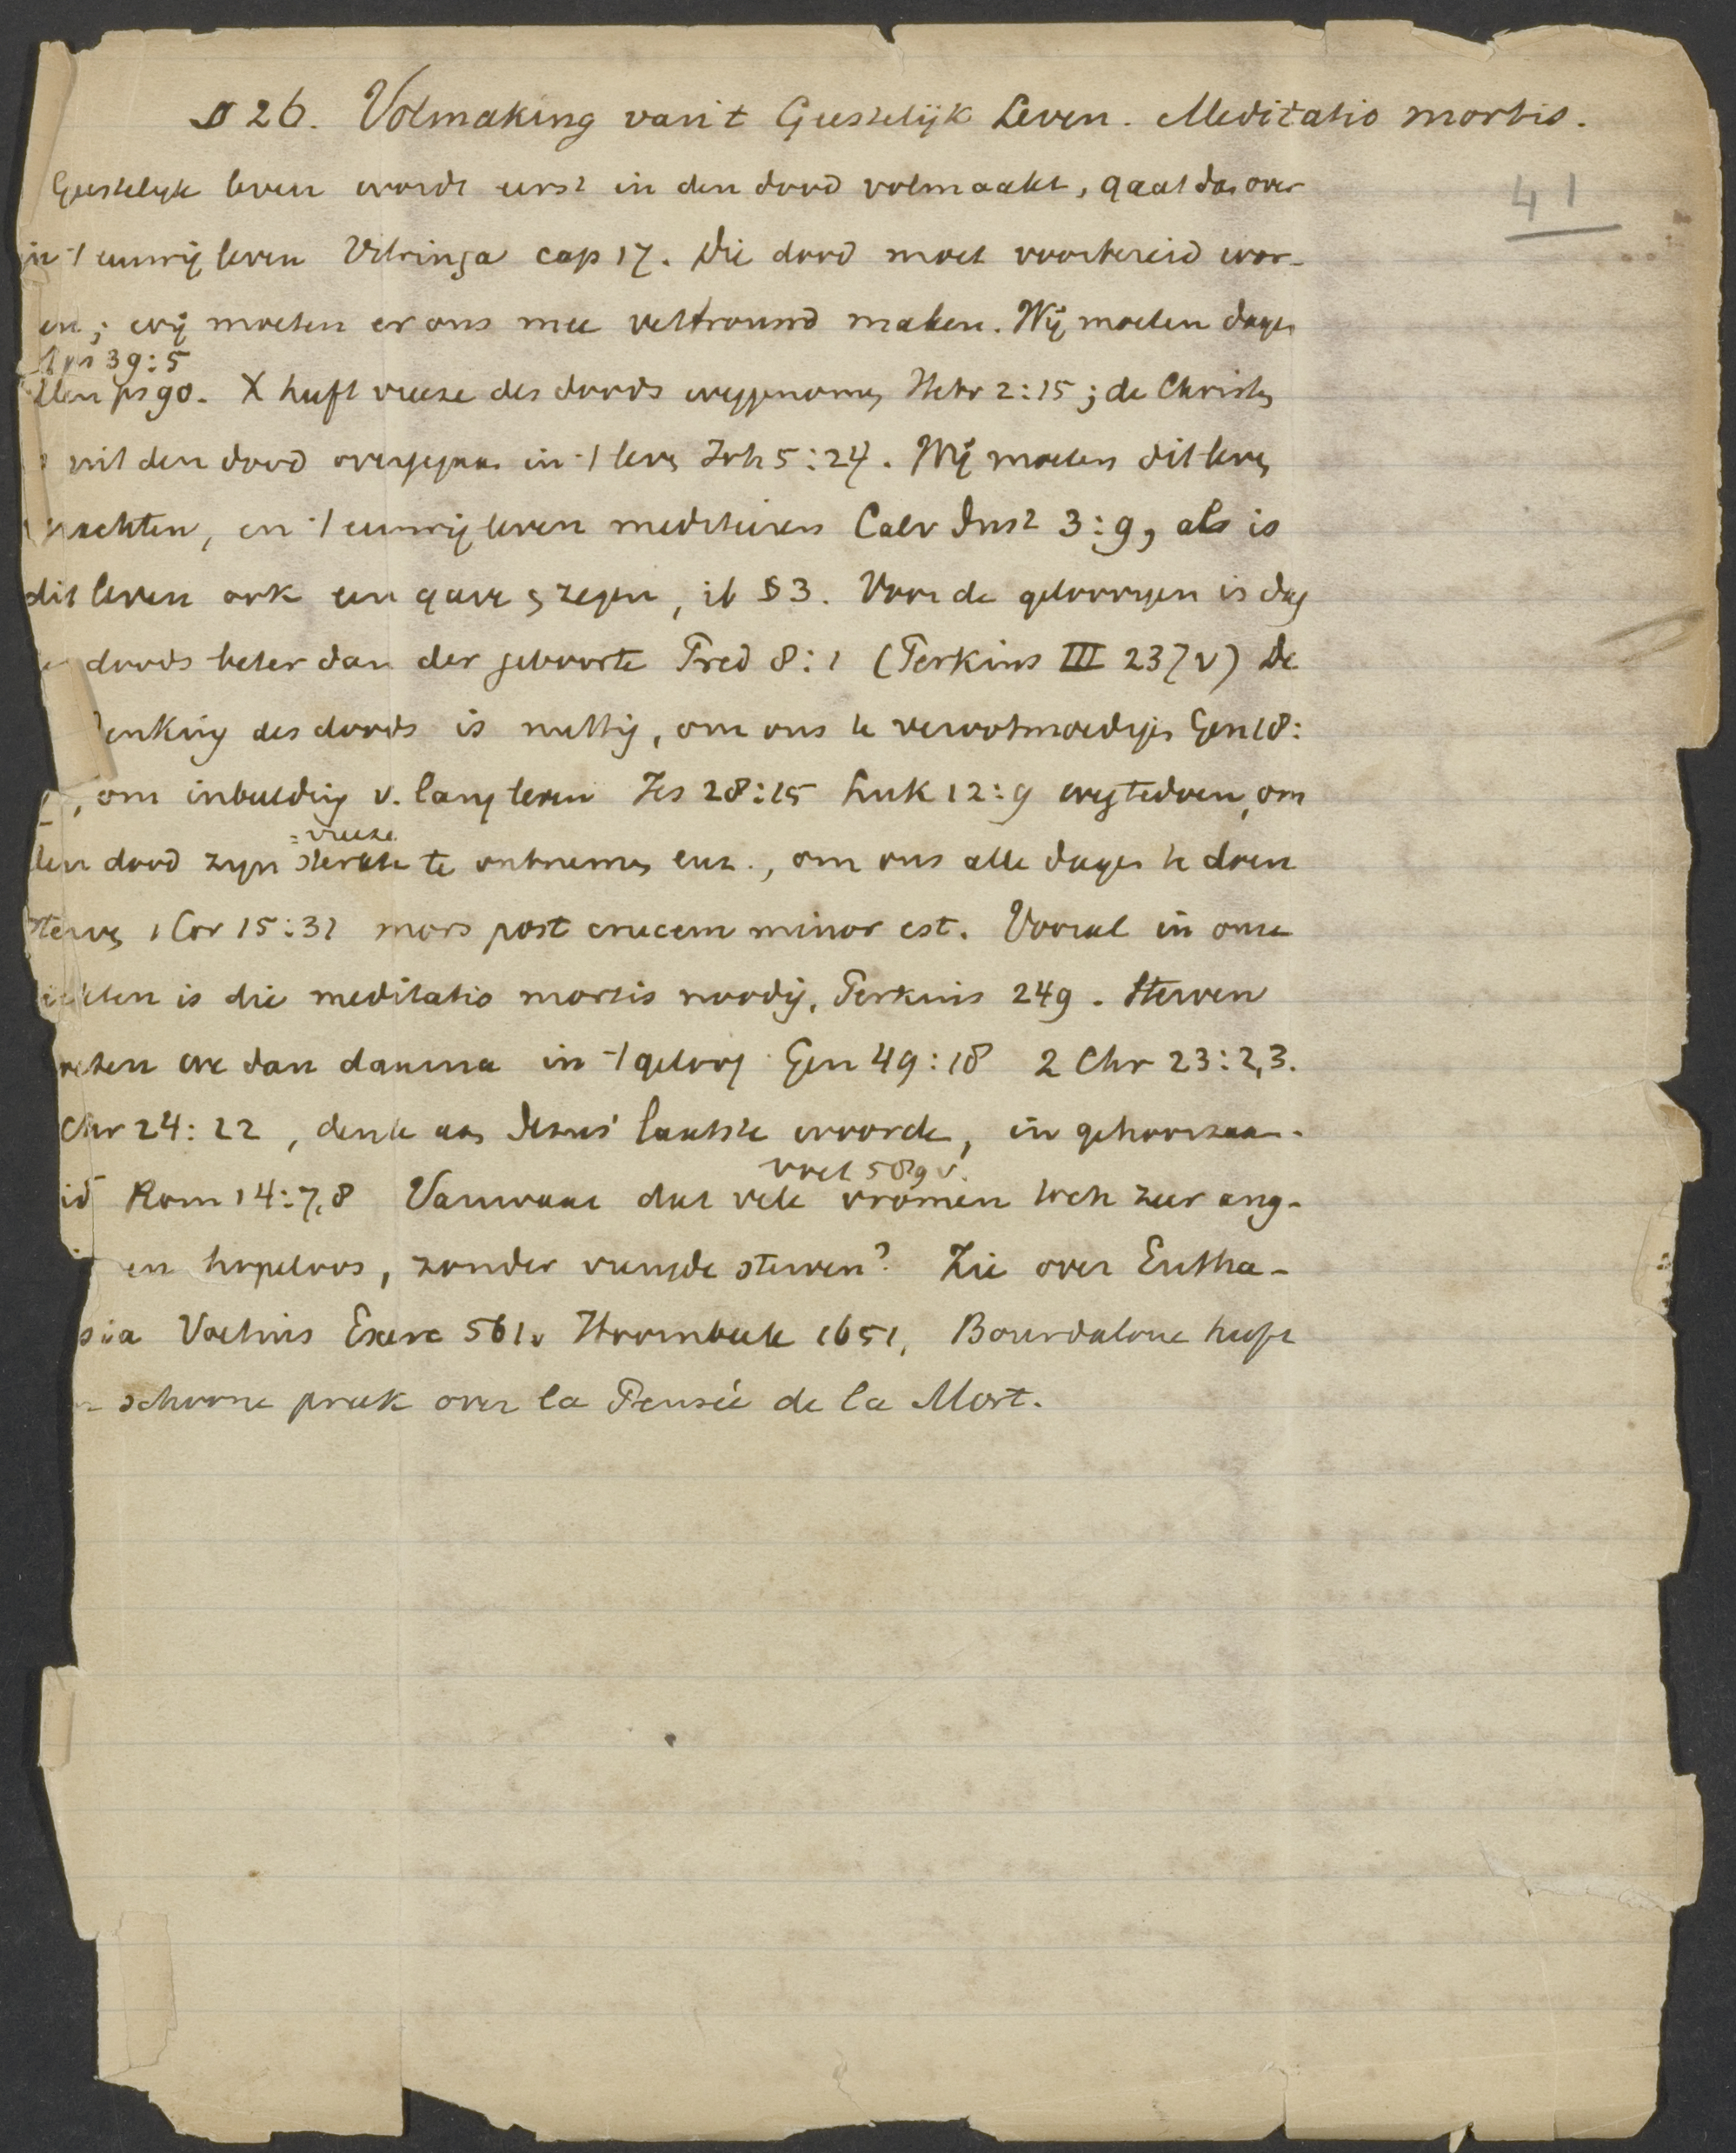 § 26. Volmaking van 't Geestelijk Leven. Meditatio mortis.
41
Geestelijk leven wordt eerst in den dood volmaakt, gaat dan over
in 't eeuwig leven Vitringa cap 17. Die dood moet voorbereid wor-
en; wij moeten er ons mee vertrouwd maken. Wij moeten dagen
ps 39:5
tellen ps 90. X heeft vreeze des doods weggenomen Hebr 2:15; de Christen
uit den dood overgegaan in 't leven Joh 5:24. Wij moeten dit leven
achten, en 't eeuwig leven mediteeren Calv Inst 3:9, als is
dit leven ook een gave en zegen, ib § 3. Voor de geloovigen is dag
doods beter dan der geboorte Pred 8:1 (Perkins III 237v) De
denking des doods is nuttig, om ons te verootmoedigen Gen 18:
, om inbeelding v. lang leven Jes 28:15 Luk 12:9 wegtedoen, om
= vreeze
den dood zijn sterkte te ontnemen enz., om ons alle dagen te doen
sterven 1 Cor 15:31 mors post crucem minor est. Vooral in onze
ziekten is die meditatio mortis noodig, Perkins 249. Sterven
moeten we dan daarna in 't geloof Gen 49:18 2 Chr 23:2,3.
Chr 24:22, denk aan Jezus' laatste woorden, in gehoorzaam-
id Rom 14:7,8 Vanwaar dat vele vromen toch zeer ang-
Voet 589 v.
en hopeloos, zonder vreugde sterven? Zie over Eutha-
sia Voetius Exerc 561v Hoornbeek 1651, Bourdaloue heeft
schoone preek over la Pensée de la Mort.